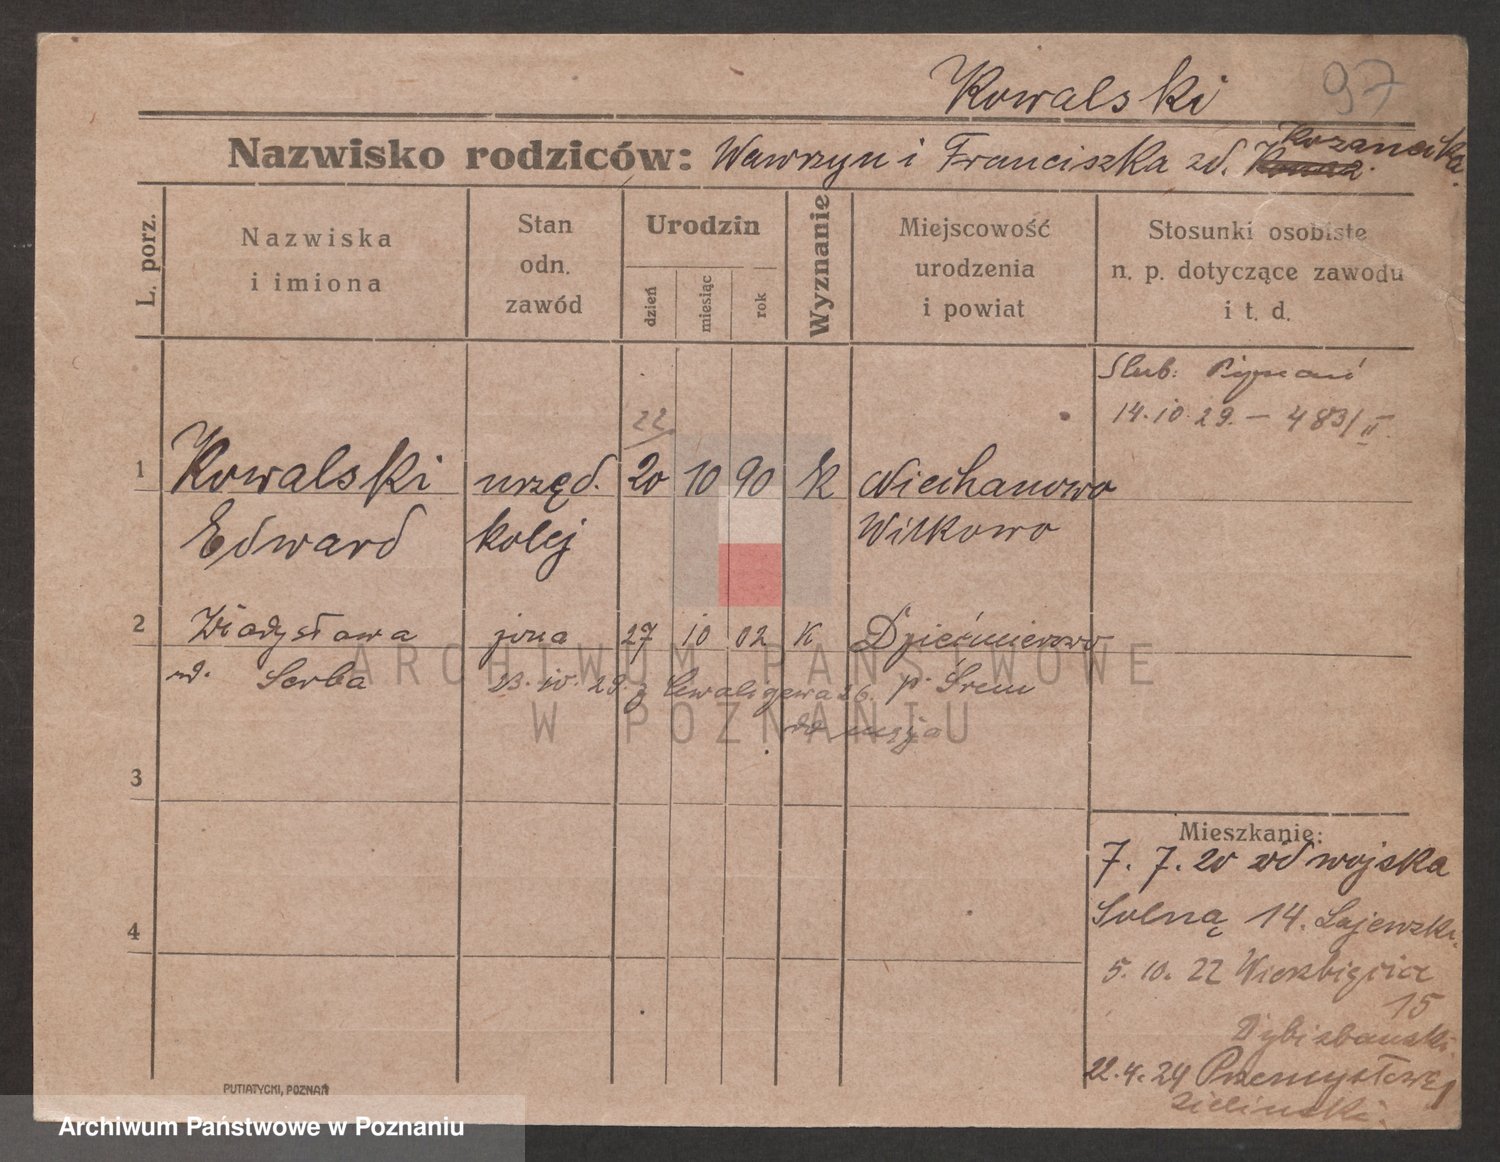 Kowalski 97
Nazwisko rodziców: Wawrzyn i Franciszka zd.
L. porz.
Nazwiska
i imiona
Stan
odn.
zawód
Urodzin
dzień
miesiąc
rok
Wyznanie
Miejscowość
urodzenia
i powiat
Stosunki osobiste
n. p. dotyczące zawodu
i t. d.
Ślub:
14.10.29. – 483/II.
22
1 Kowalski urzęd. 20 10 90 K Niechanowo
Edward kolej Witkowo
2 Władysława żona 27 10 02 K Dziećmierowo
ur. Serba 23. 10. 29. z p. Śrem
3
4
Mieszkanie:
7. 7. 20 od wojska
Solna 14. Łajewski.
5. 10. 22 Wierzbięcice
15
22.4.24 Przemysłowa
Zieliński.
PUTIATYCKI, POZNAŃ
ARCHIWUM PAŃSTWOWE
W POZNANIU
Archiwum Państwowe w Poznaniu